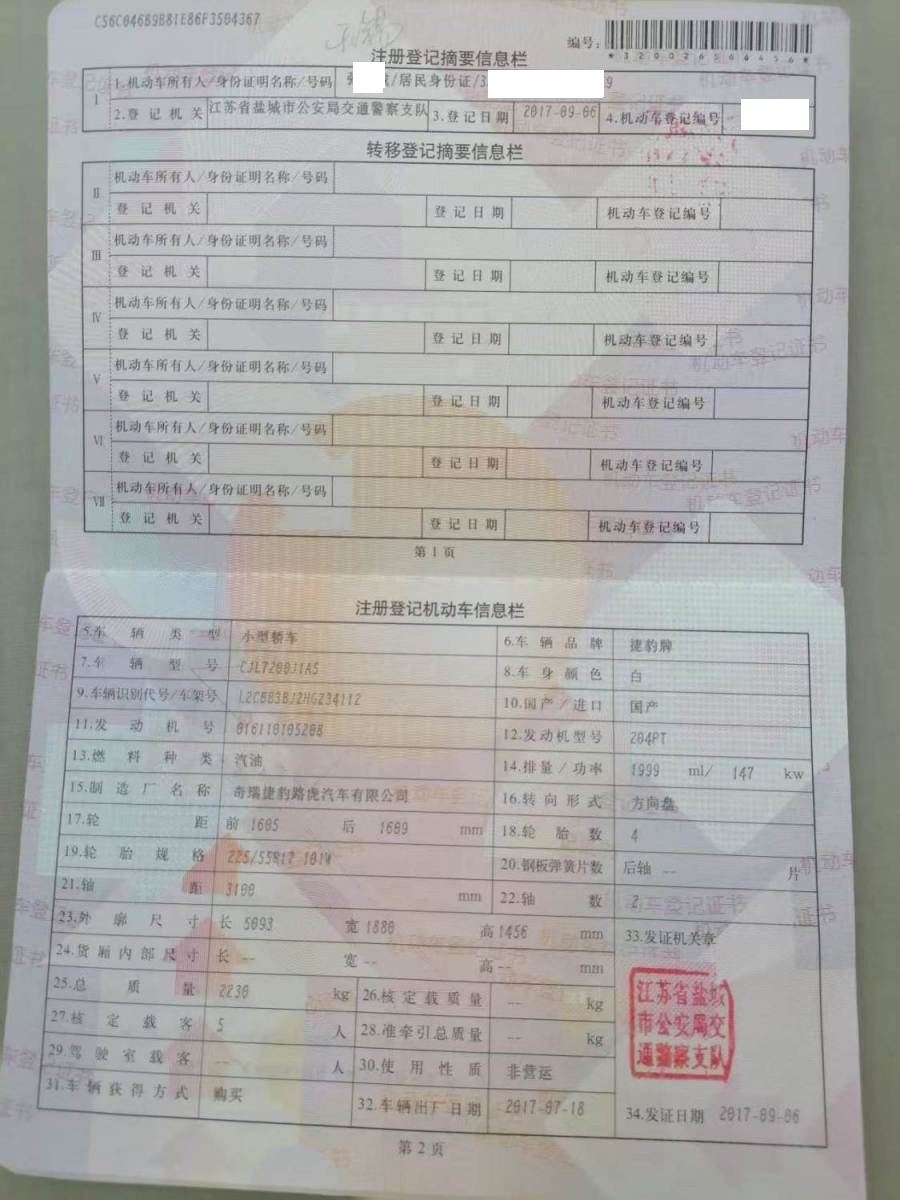 C56C04689B81E86F3504367
编号:
*320026566456*
注册登记摘要信息栏
I 1.机动车所有人/身份证明名称/号码 /居民身份证/3 9
2.登记机关 江苏省盐城市公安局交通警察支队 3.登记日期 2017-09-06 4.机动车登记编号
转移登记摘要信息栏
II 机动车所有人/身份证明名称/号码
登记机关 登记日期 机动车登记编号
III 机动车所有人/身份证明名称/号码
登记机关 登记日期 机动车登记编号
IV 机动车所有人/身份证明名称/号码
登记机关 登记日期 机动车登记编号
V 机动车所有人/身份证明名称/号码
登记机关 登记日期 机动车登记编号
VI 机动车所有人/身份证明名称/号码
登记机关 登记日期 机动车登记编号
VII 机动车所有人/身份证明名称/号码
登记机关 登记日期 机动车登记编号
第1页
注册登记机动车信息栏
5.车辆类型 小型轿车 6.车辆品牌 捷豹牌
7.车辆型号 CJL7200J1A5 8.车身颜色 白
9.车辆识别代号/车架号 L2CBB3BJ2HG234112 10.国产/进口 国产
11.发动机号 016110105208 12.发动机型号 204PT
13.燃料种类 汽油 14.排量/功率 1999 ml/ 147 kw
15.制造厂名称 奇瑞捷豹路虎汽车有限公司 16.转向形式 方向盘
17.轮距 前 1605 后 1609 mm 18.轮胎数 4
19.轮胎规格 225/55R17 101W 20.钢板弹簧片数 后轴 -- 片
21.轴距 3100 mm 22.轴数 2
23.外廓尺寸 长 5093 宽 1880 高 1456 mm 33.发证机关章
24.货厢内部尺寸 长 -- 宽 -- 高 -- mm
25.总质量 2230 kg 26.核定载质量 -- kg
27.核定载客 5 人 28.准牵引总质量 -- kg
29.驾驶室载客 -- 人 30.使用性质 非营运
江苏省盐城
市公安局交
通警察支队
31.车辆获得方式 购买 32.车辆出厂日期 2017-07-18 34.发证日期 2017-09-06
第2页